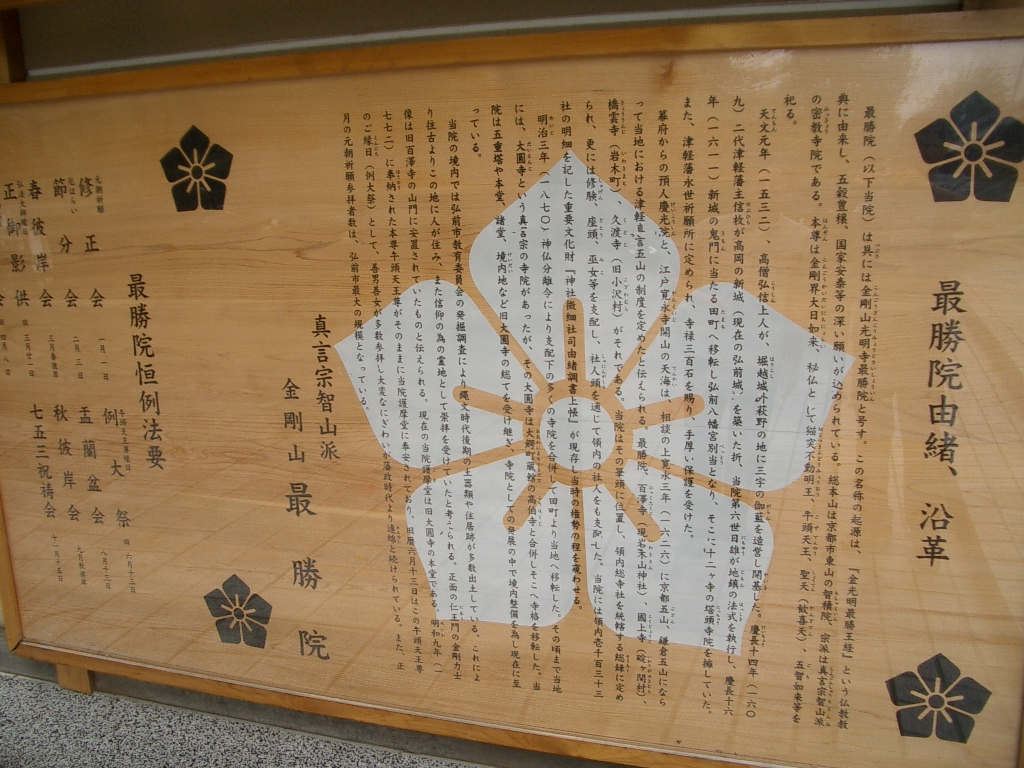 最勝院由緒、沿革
最勝院（以下当院）は具には金剛山光明寺最勝院と号す。この名称の起源は、『金光明最勝王経』という仏教教
典に由来し、五穀豊穣、国家安泰等の深い願いが込められている。総本山は京都市東山の智積院、宗派は真言宗智山派
の密教寺院である。本尊は金剛界大日如来、秘仏として猫突不動明王、牛頭天王、聖天（歓喜天）、五智如来等を
祀る。
天文元年（一五三二）、高僧弘信上人が、堀越城外萩野の地に三宇の伽藍を造営し開基した。慶長十四年（一六〇
九）二代津軽藩主信枚が高岡の新城（現在の弘前城）を築いた折、当院第六世日雄が地鎮の法式を執行し、慶長十六
年（一六一一）新城の鬼門に当たる田町へ移転し弘前八幡宮別当となり、そこに十二ヶ寺の塔頭寺院を擁していた。
また、津軽藩永世祈願所に定められ、寺禄三百石を賜り、手厚い保護を受けた。
幕府からの預人慶光院と、江戸寛永寺開山の天海は、相談の上寛永三年（一六二六）に京都五山、鎌倉五山になら
って当地における津軽真言五山の制度を定めたと伝えられる。最勝院、百澤寺（現岩木山神社）、國上寺（碇ヶ関村）、
橋雲寺（岩木町）、久渡寺（旧小沢村）がそれである。当院はその筆頭に位置し、領内総寺社を統轄する総録に定め
られ、更には修験、座頭、巫女等を支配し、社人頭を通じて領内の社人をも支配した。当院には領内壱千百三十三
社の明細を記した重要文化財『神社微細社司由緒調書上帳』が現存し当時の権勢の程を窺わせる。
明治三年（一八七〇）神仏分離令により支配下の多くの寺院を合併して田町より当地へ移転した。その頃まで当地
には、大圓寺という真言宗の寺院があったが、その大圓寺は大鰐町蔵館の高伯寺と合併しそこへ寺格を移転した。当
院は五重塔や本堂、諸堂、境内地など旧大圓寺の総てを受け継ぎ、寺院としての発展の中で境内整備を為し現在に至
っている。
当院の境内では弘前市教育委員会の発掘調査により縄文時代後期の土器類や住居跡が多数出土している。これによ
り往古よりこの地に人が住み、また信仰の為の霊地として崇拝を受けていたと考えられる。正面の仁王門の金剛力士
像は旧百澤寺の山門に安置されていたものと伝えられる。現在の当院護摩堂は旧大圓寺の本堂である。明和九年（一
七七二）に奉納された本尊牛頭天王尊がそのままに当院護摩堂に奉安されており、旧暦六月十三日はこの牛頭天王尊
のご縁日（例大祭）として、善男善女が多数参拝し大変なにぎわいが藩政時代より連綿と続けられている。また、正
月の元朝祈願参拝者数は、弘前市最大の規模となっている。
真言宗智山派
金剛山最勝院
最勝院恒例法要
元朝祈願
修正会 一月一日
例大祭 旧六月十三日
節分会 二月三日
盂蘭盆会 八月十三日
春彼岸会 三月春彼岸
秋彼岸会 九月秋彼岸
正御影供 旧三月廿一日
七五三祝祷会 十一月十五日